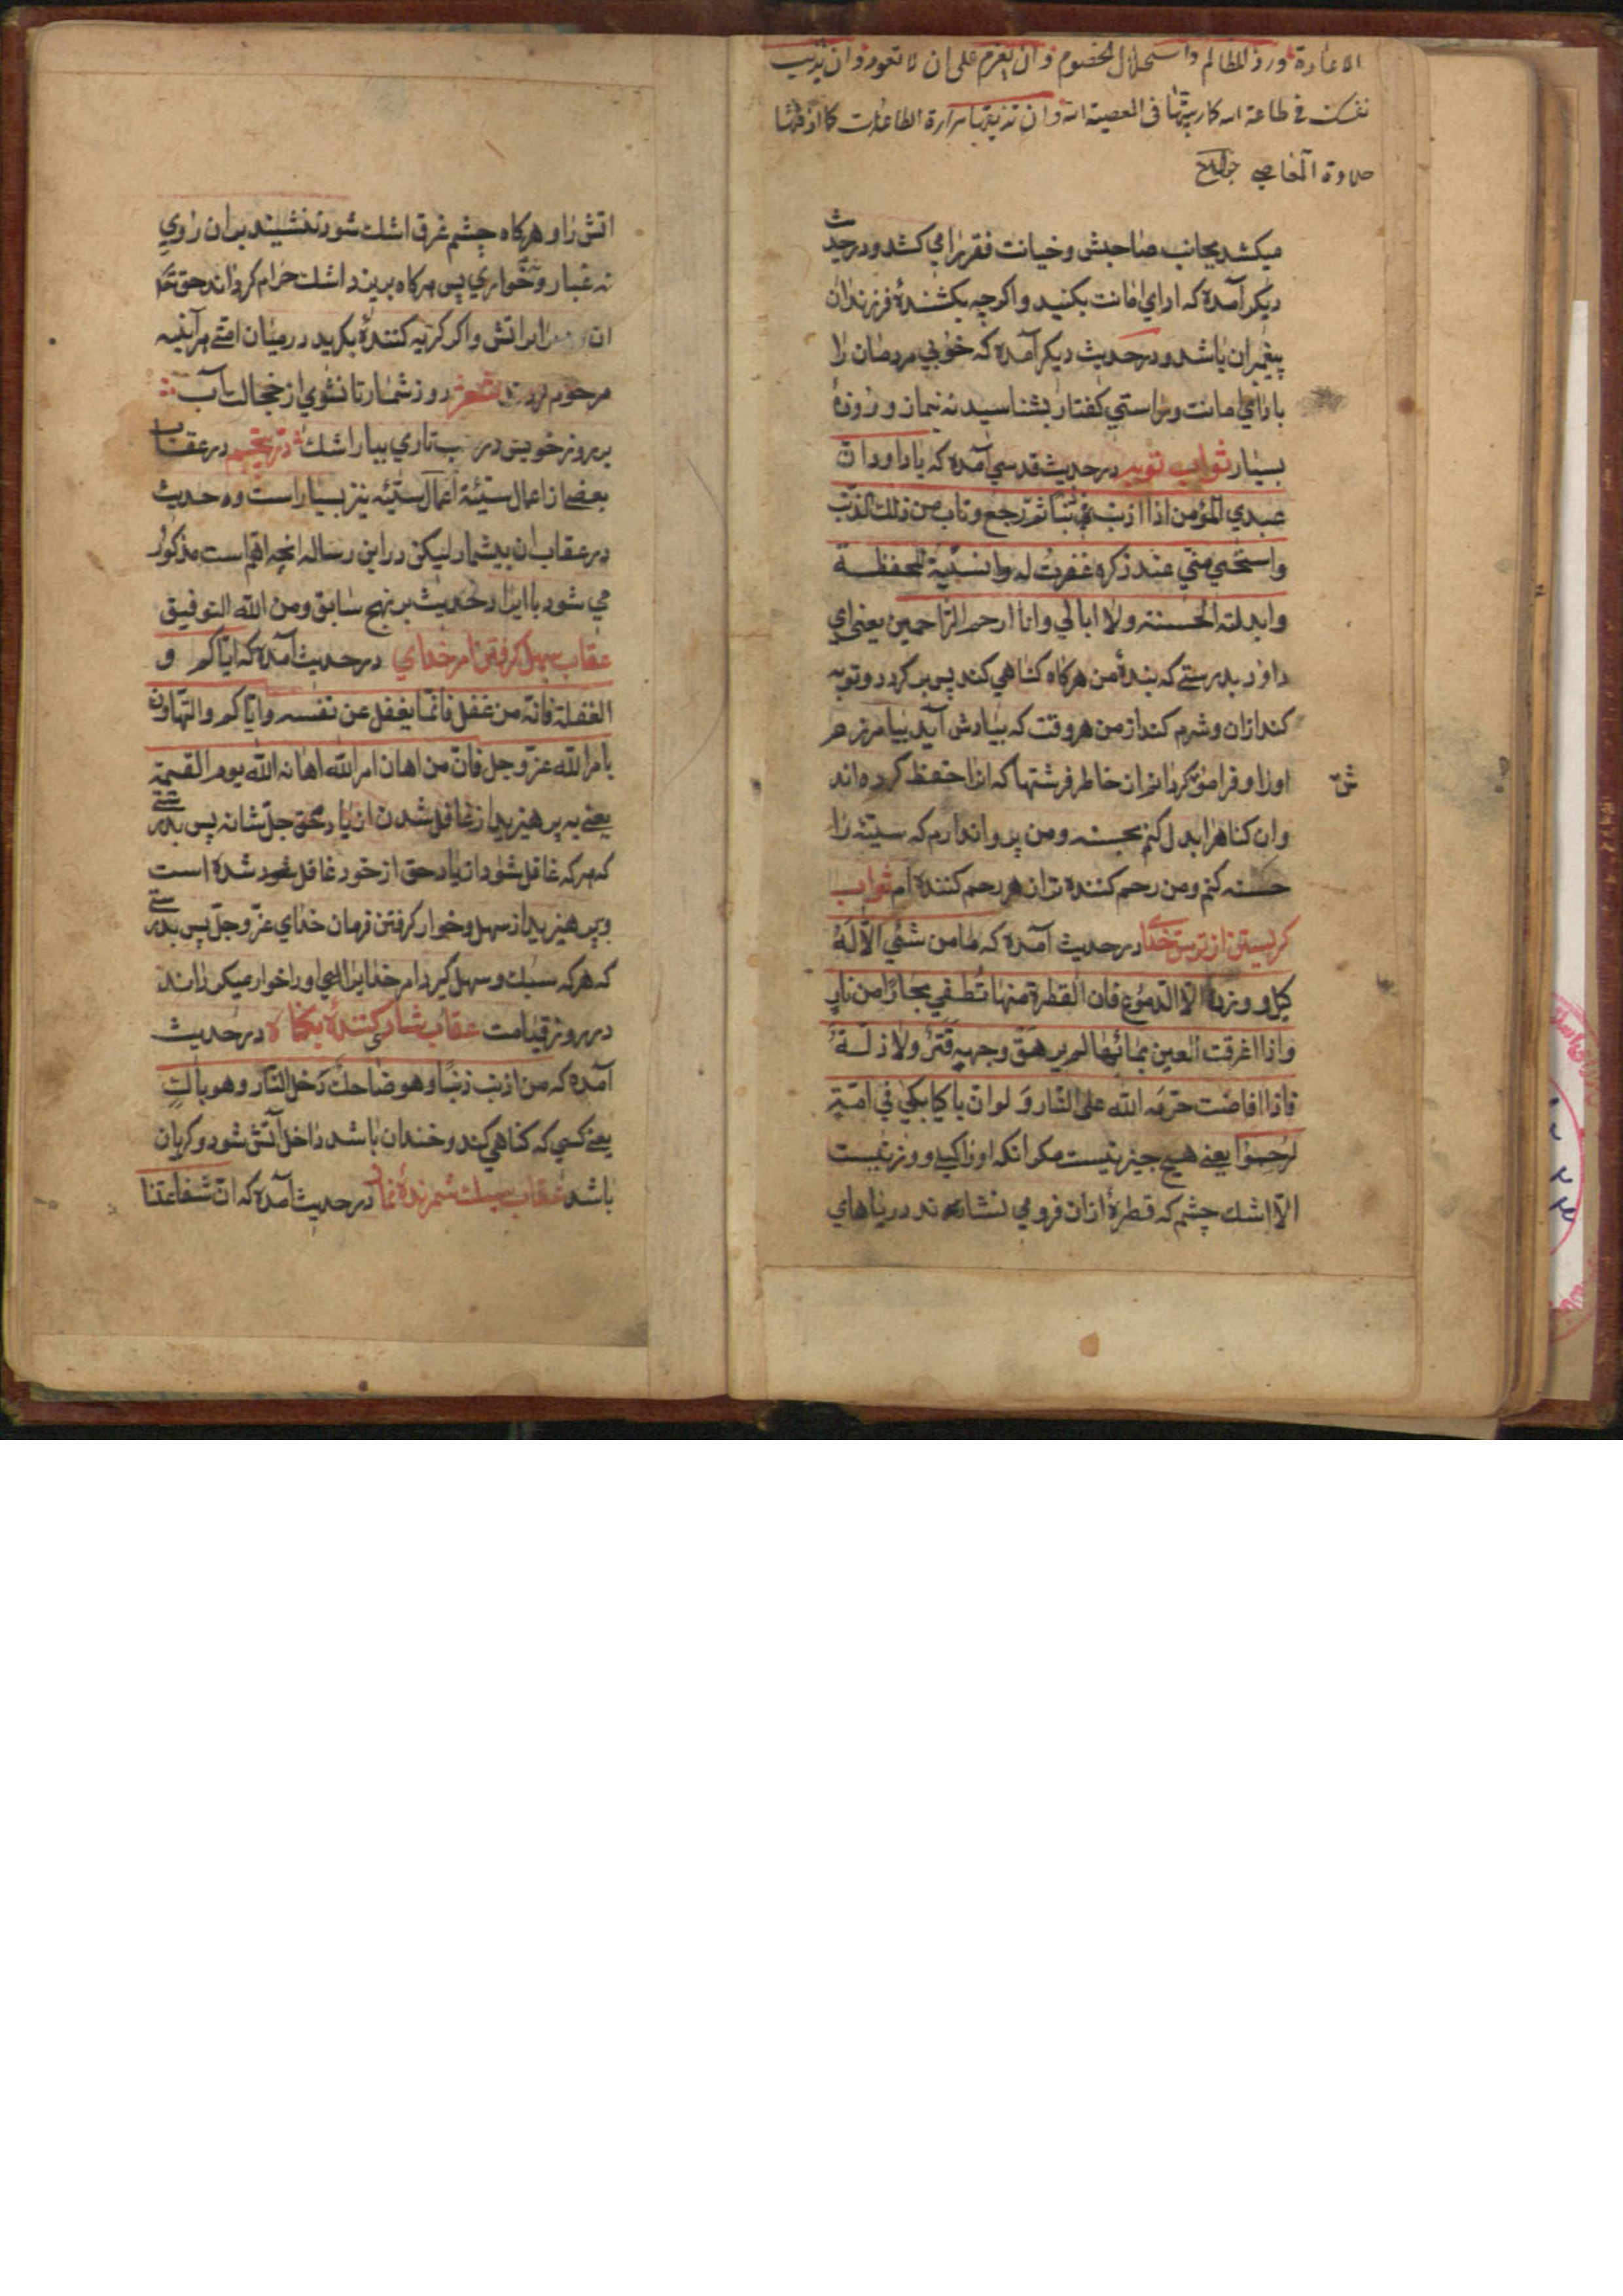 الاعادة ورد المظالم واستحلال الخصوم وان العزم علی ان لا تعود وان تذیب
نفسک فی طاعة الله کما ربیتها فی المعصیة وان تذیقها مرارة الطاعات کما اذقتها
حلاوة المعاصی
میکشد بجانب صاحبش و خیانت فقر را می کشد و در حدیث
دیکر آمده که ادای امانت بکنید و اکرچه بکشندهٔ فرزندان
پیغمبران باشد و در حدیث دیکر آمده که خوبی مردمان را
بادای امانت و براستی کفتار بشناسید نه بنماز و روزهٔ
بسیار ثواب توبه در حدیث قدسی آمده که یا داود ان
عبدی المؤمن اذا اذنب ذنبا ثم رجع و تاب من ذلک الذنب
واستحیی منی عند ذکره غفرت له وانسیته الحفظة
وابدلته الحسنة ولا ابالی وانا ارحم الراحمین یعنی ای
داود بدرستی که بندهٔ من هرکاه کناهی کند پس برکردد و توبه
کند ازان و شرم کند از من هر وقت که بیادش آید بیامرزم
اورا و فراموش کردانم از خاطر فرشتها که انرا حفظ کرده اند
وان کناه را بدل کنم بحسنه و من پروا ندارم که سیئه را
حسنه کنم و من رحم کننده تر از هر رحم کننده ام ثواب
کریستن از ترس خدای در حدیث آمده که ما من شئی الا له
کیل و وزن الا الدموع فان القطرة منها تطفی بحارا من نار
واذا اغرقت العین بمائها لم یرهق وجهه قتر ولا ذلة
فاذا افاضت حرمه الله علی النار ولو ان باکیا بکی فی امته
لرحموا یعنی هیچ چیز نیست مکر انکه اورا کیل و وزنیست
الا اشک چشم که قطرهٔ ازان فرو می نشاند دریاهای
اتش را و هرکاه چشم غرق اشک شود ننشیند بران روی
نه غبار و نه خواری پس هرکاه بریزد اشک حرام کرداند حق تعالی
ان را بر اتش و اکر کریه کنندهٔ بکرید در میان امتی هر آینه
مرحوم کردند شعر روز شمار تا نشوی از خجالت آب
بر روز خویش در شب تاری ببار اشک در عقاب
بعضی از اعمال سیئة اعمال سیئه نیز بسیار است و حدیث
در عقاب ان بیشمار لیکن در این رساله انچه اهم است مذکور
می شود با ایراد حدیث بر نهج سابق و من الله التوفیق
عقاب سهل کرفتن امر خدای در حدیث آمده که ایاکم و
الغفلة فانه من غفل فانما یغفل عن نفسه وایاکم والتهاون
بامر الله عز وجل فان من اهان امر الله اهانه الله یوم القیمة
یعنی بپرهیزید از غافل شدن از یاد حق جل شانه پس بدرستی
که هرکه غافل شود از یاد حق از خود غافل شده است
و بپرهیزید از سهل و خوار کرفتن فرمان خدای عز وجل پس بدرستی
که هرکه سبک و سهل کیرد امر خدایرا خدای اورا خوار میکرداند
در روز قیامت عقاب شادی کنندهٔ بکناه در حدیث
آمده که من اذنب ذنبا و هو ضاحک دخل النار و هو باک
یعنی کسی که کناهی کند و خندان باشد داخل آتش شود و کریان
باشد عقاب سبک شمرندهٔ نماز در حدیث آمده که ان شفاعتنا